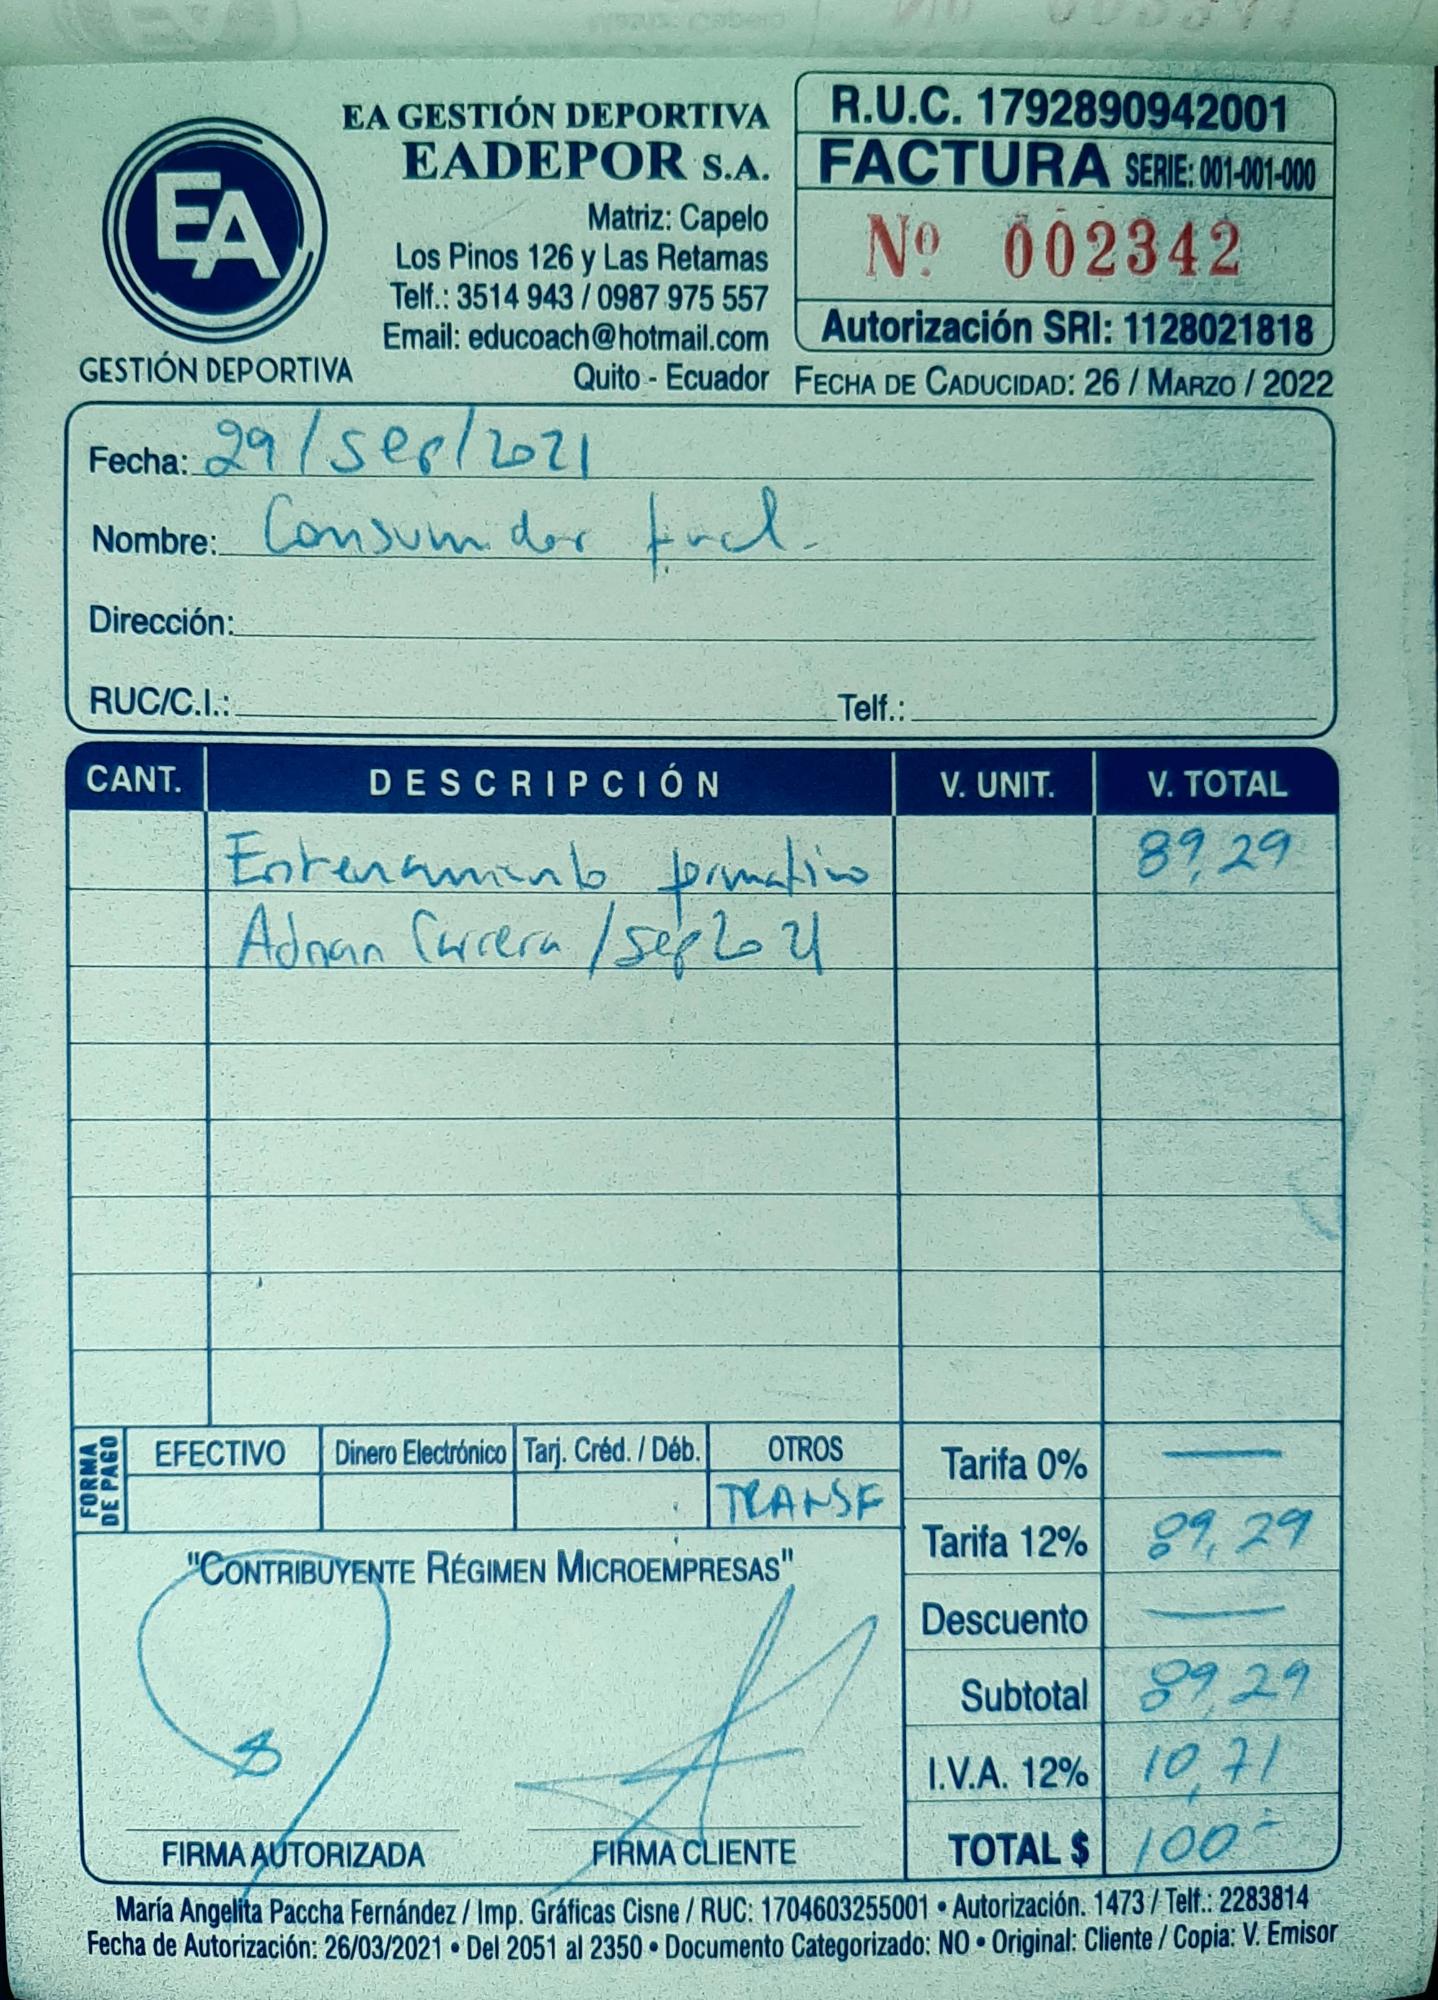 EA
GESTIÓN DEPORTIVA
EA GESTIÓN DEPORTIVA
EADEPOR S.A.
Matriz: Capelo
Los Pinos 126 y Las Retamas
Telf.: 3514 943 / 0987 975 557
Email: educoach@hotmail.com
Quito - Ecuador
R.U.C. 1792890942001
FACTURA SERIE: 001-001-000
Nº 002342
Autorización SRI: 1128021818
FECHA DE CADUCIDAD: 26 / MARZO / 2022
Fecha: 29/sep/2021
Nombre: Consumidor final.
Dirección:
RUC/C.I.: Telf.:
CANT. DESCRIPCIÓN V. UNIT. V. TOTAL
Entrenamiento formativo 89,29
Adrian Carrera / sep 2021
FORMA DE PAGO
EFECTIVO Dinero Electrónico Tarj. Créd. / Déb. OTROS
TRANSF
"CONTRIBUYENTE RÉGIMEN MICROEMPRESAS"
Tarifa 0% —
Tarifa 12% 89,29
Descuento —
Subtotal 89,29
I.V.A. 12% 10,71
TOTAL $ 100-
FIRMA AUTORIZADA FIRMA CLIENTE
María Angelita Paccha Fernández / Imp. Gráficas Cisne / RUC: 1704603255001 • Autorización. 1473 / Telf.: 2283814
Fecha de Autorización: 26/03/2021 • Del 2051 al 2350 • Documento Categorizado: NO • Original: Cliente / Copia: V. Emisor